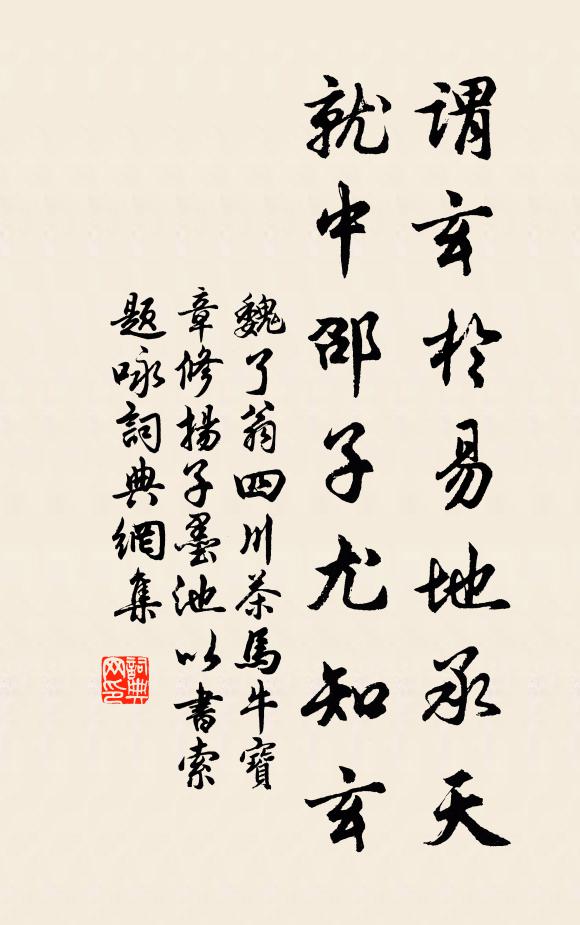 謂玄於易地承天
就中邵子尤知玄
魏了翁四川茶馬牛寶
章修揚子墨池以書索
題咏詞典網集
詞典网印